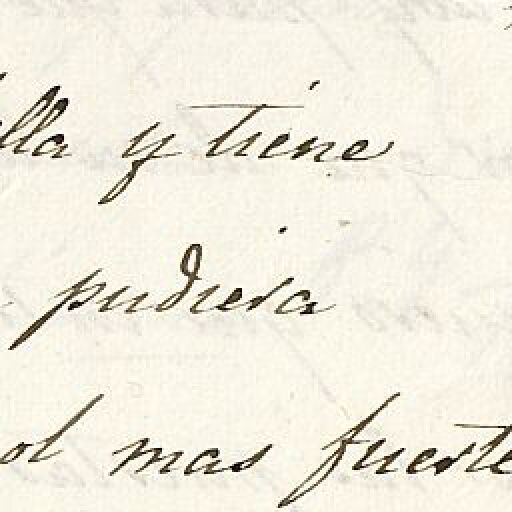 lla y tiene
pudiera
ol mas fuerte